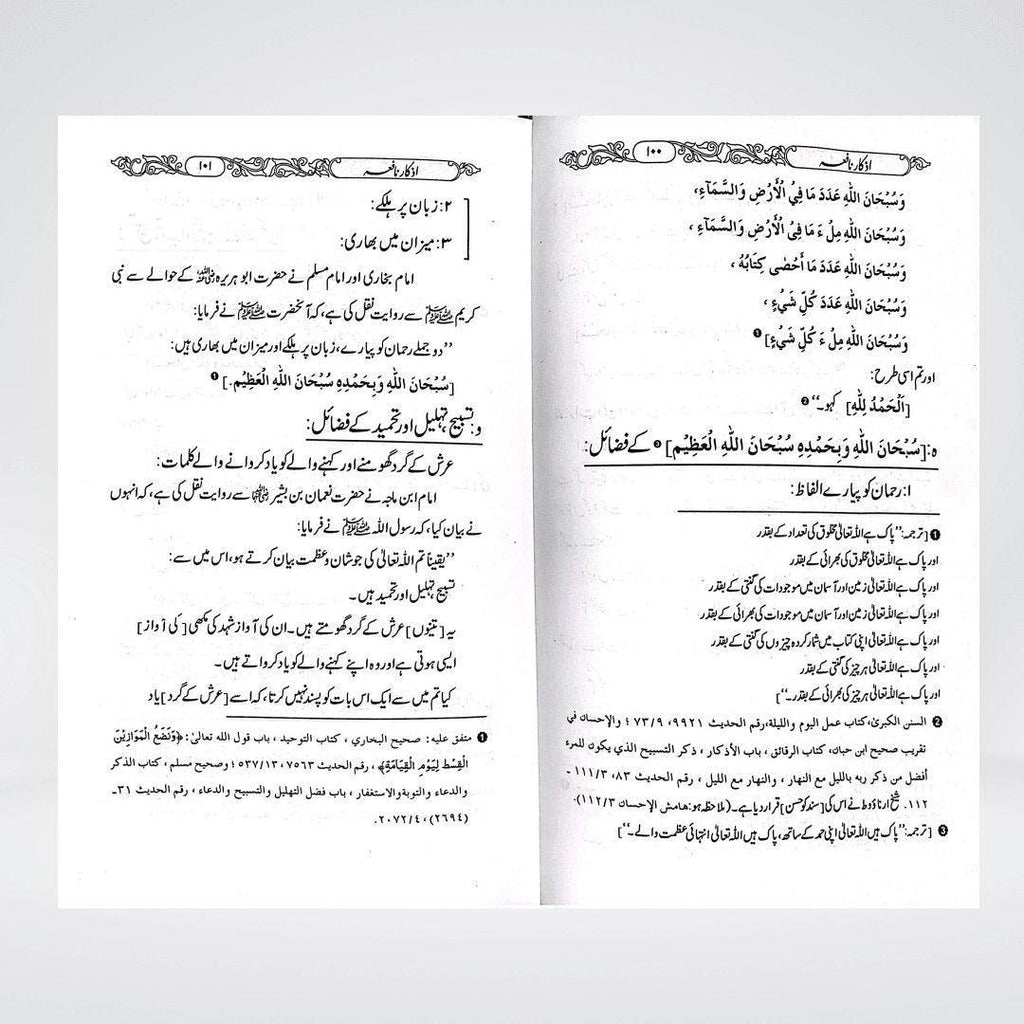 اذکار نافعہ
۱۰۰
وَسُبْحَانَ اللّٰهِ عَدَدَ مَا فِي الْأَرْضِ وَالسَّمَآءِ،
وَسُبْحَانَ اللّٰهِ مِلْءَ مَا فِي الْأَرْضِ وَالسَّمَآءِ،
وَسُبْحَانَ اللّٰهِ عَدَدَ مَا أَحْصٰى كِتَابُهُ،
وَسُبْحَانَ اللّٰهِ عَدَدَ كُلِّ شَيْءٍ،
وَسُبْحَانَ اللّٰهِ مِلْءَ كُلِّ شَيْءٍ] ❶
اور تم اسی طرح:
[اَلْحَمْدُ لِلّٰهِ] کہو۔‘‘ ❷
ہ: [سُبْحَانَ اللّٰهِ وَبِحَمْدِهِ سُبْحَانَ اللّٰهِ الْعَظِيْمِ] ❸ کے فضائل:
۱: رحمان کو پیارے الفاظ:
❶ [ترجمہ: ’’پاک ہے اللہ تعالیٰ مخلوق کی تعداد کے بقدر
اور پاک ہے اللہ تعالیٰ مخلوق کی بھرائی کے بقدر
اور پاک ہے اللہ تعالیٰ زمین اور آسمان میں موجودات کی گنتی کے بقدر
اور پاک ہے اللہ تعالیٰ زمین اور آسمان میں موجودات کی بھرائی کے بقدر
اور پاک ہے اللہ تعالیٰ اپنی کتاب میں شمار کردہ چیزوں کی گنتی کے بقدر
اور پاک ہے اللہ تعالیٰ ہر چیز کی گنتی کے بقدر
اور پاک ہے اللہ تعالیٰ ہر چیز کی بھرائی کے بقدر۔‘‘]
❷ السنن الكبرىٰ، كتاب عمل اليوم والليلة، رقم الحديث ۹۹۲۱، ۷۳/۹؛ والإحسان في
تقريب صحيح ابن حبان، كتاب الرقائق، باب الأذكار، ذكر التسبيح الذي يكون للمرء
أفضل من ذكر ربه بالليل مع النهار، والنهار مع الليل، رقم الحديث ۸۳۰، ۱۱۱/۳۔
۱۱۲. شیخ ارناؤوط نے اس کی [سند کو حسن] قرار دیا ہے۔ (ملاحظہ ہو: هامش الإحسان ۱۱۲/۳).
❸ [ترجمہ: ’’پاک ہیں اللہ تعالیٰ اپنی حمد کے ساتھ، پاک ہیں اللہ تعالیٰ انتہائی عظمت والے۔‘‘]
اذکار نافعہ
۱۰۱
۲: زبان پر ہلکے:
۳: میزان میں بھاری:
امام بخاری اور امام مسلم نے حضرت ابو ہریرہ رضی اللہ عنہ کے حوالے سے نبی
کریم ﷺ سے روایت نقل کی ہے، کہ آنحضرت ﷺ نے فرمایا:
’’دو جملے رحمان کو پیارے، زبان پر ہلکے اور میزان میں بھاری ہیں:
[سُبْحَانَ اللّٰهِ وَبِحَمْدِهِ سُبْحَانَ اللّٰهِ الْعَظِيْمِ.] ❶
و: تسبیح، تہلیل اور تحمید کے فضائل:
عرش کے گرد گھومنے اور کہنے والے کو یاد کروانے والے کلمات:
امام ابن ماجہ نے حضرت نعمان بن بشیر رضی اللہ عنہما سے روایت نقل کی ہے، کہ انہوں
نے بیان کیا، کہ رسول اللہ ﷺ نے فرمایا:
’’یقیناً تم اللہ تعالیٰ کی جو شان و عظمت بیان کرتے ہو، اس میں سے:
تسبیح، تہلیل اور تحمید ہیں۔
یہ [تینوں] عرش کے گرد گھومتے ہیں۔ ان کی آواز شہد کی مکھی [کی آواز]
ایسی ہوتی ہے اور وہ اپنے کہنے والے کو یاد کرواتے ہیں۔
کیا تم میں سے ایک اس بات کو پسند نہیں کرتا، کہ اسے [عرش کے گرد] یاد
❶ متفق عليه: صحيح البخاري، كتاب التوحيد، باب قول الله تعالىٰ: ﴿وَنَضَعُ الْمَوَازِيْنَ
الْقِسْطَ لِيَوْمِ الْقِيَامَةِ﴾، رقم الحديث ۷۵۶۳، ۵۳۷/۱۳؛ وصحيح مسلم، كتاب الذكر
والدعاء والتوبة والاستغفار، باب فضل التهليل والتسبيح والدعاء، رقم الحديث ۳۱۔
(۲۶۹۴)، ۲۰۷۲/۴.